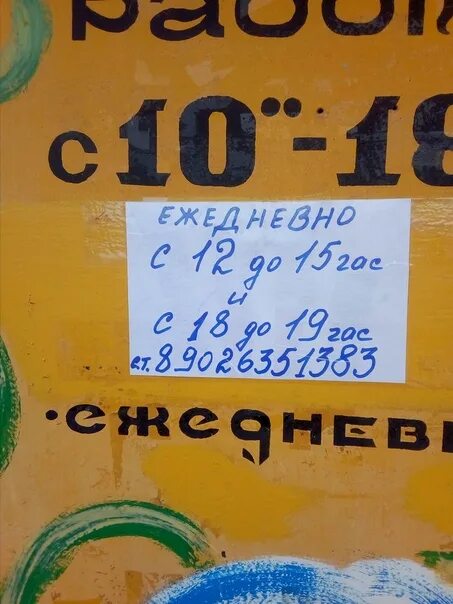 Работ
с 10⁰⁰-18
ЕЖЕДНЕВНО
с 12 до 15 час
и
с 18 до 19 час
ст. 89026351383
·ежедневн